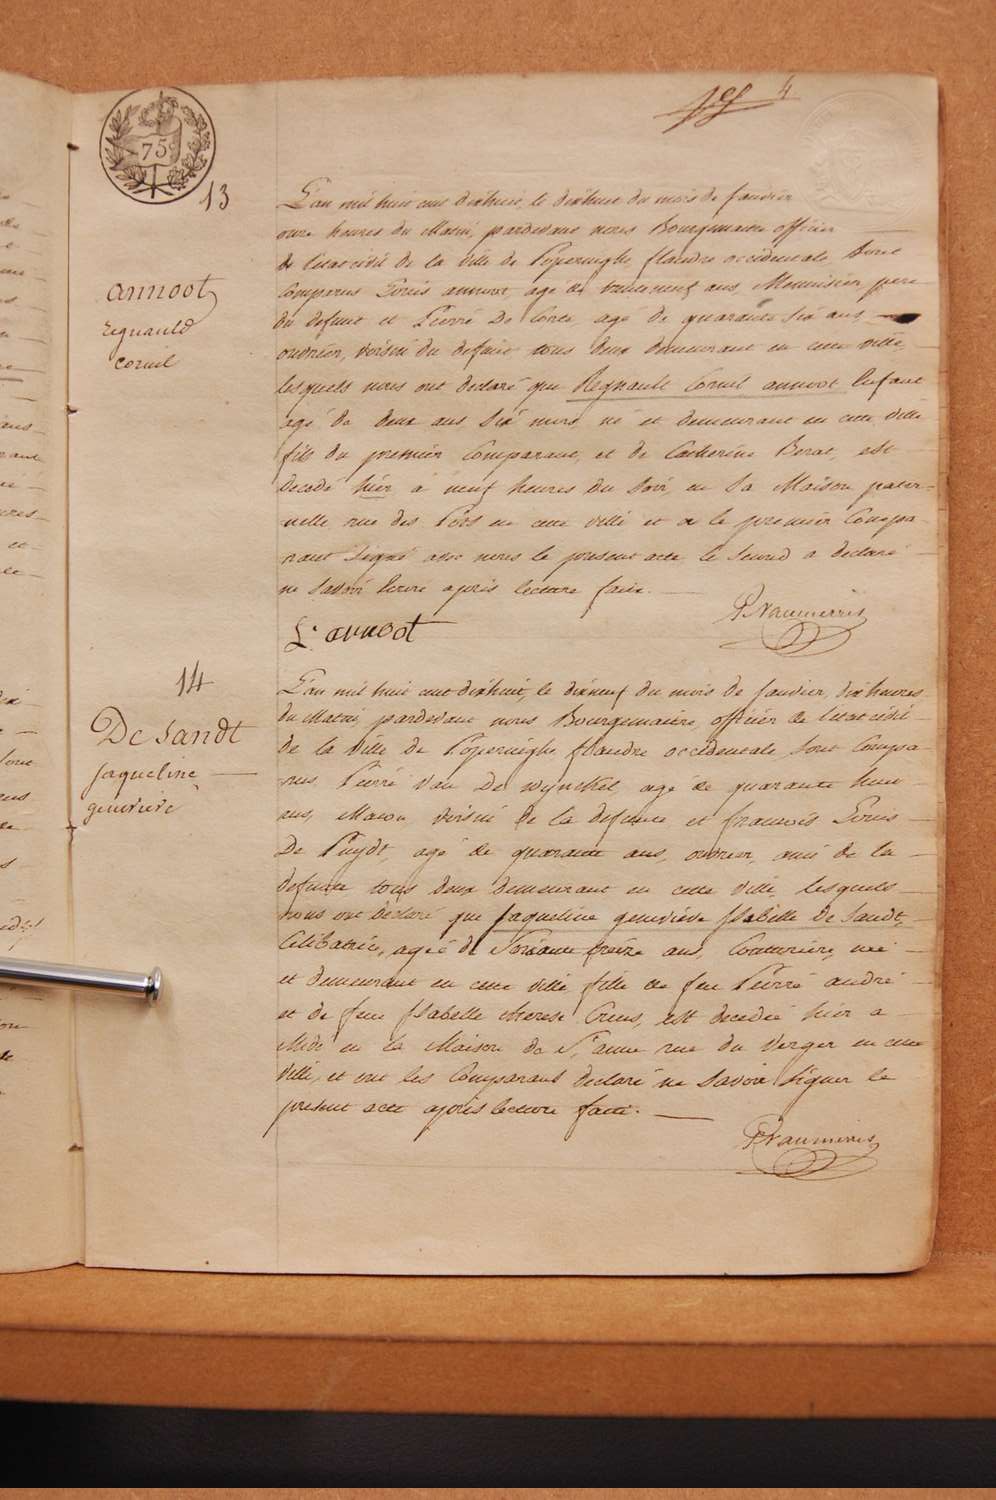 4
75
13
annoot
Regnauld
Cornil
L'an mil huit cent dixhuit, le dixhuit du mois de Janvier
onze heures du Matin, pardevant nous Bourgemaitre officier
de l'etat civil de la ville de Poperinghe flandre occidentale Sont
Comparus Louis annoot, agé de trenteneuf ans Menuisier, pere
du defunt et Pierre De Conte agé de quarante six ans,
ouvrier, voisin du defunt tous deux demeurant en cette ville,
lesquels nous ont declaré que Regnault Cornil annoot Enfant
agé de deux ans six mois né et demeurant en cette ville
fils du premier Comparant, et de Catherine Berat, est
decedé hier à neuf heures du Soir en Sa Maison pater-
nelle rue des Pots en cette ville et a le premier Compa-
rant Signé avec nous le present acte le Second a declaré
ne Savoir Ecrire après lecture faite.
L. annoot
14
De Sandt
Jaqueline
genevieve
L'an mil huit cent dixhuit, le dixneuf du mois de Janvier, dix heures
du Matin, pardevant nous Bourgemaitre, officier de l'etat civil
de la ville de Poperinghe, flandre occidentale, Sont Compa-
rus Pierre Van De Wynckel agé de quarante huit
ans, Macon, voisin de la defunte et francois Louis
De Puydt, agé de quarante ans, ouvrier, ami de la
defunte tous deux demeurant en cette ville, lesquels
nous ont declaré que Jaqueline genevieve Isabelle de Sandt,
Celibataire, agée de Soixante treize ans, Couturiere, née
et demeurant en cette ville, fille de feu Pierre andré
et de feue Isabelle therese est decedée hier a
Midi en la Maison de Ste anne rue du Verger en cette
ville, et ont les Comparans declaré ne Savoir Signer le
present acte après lecture faite.